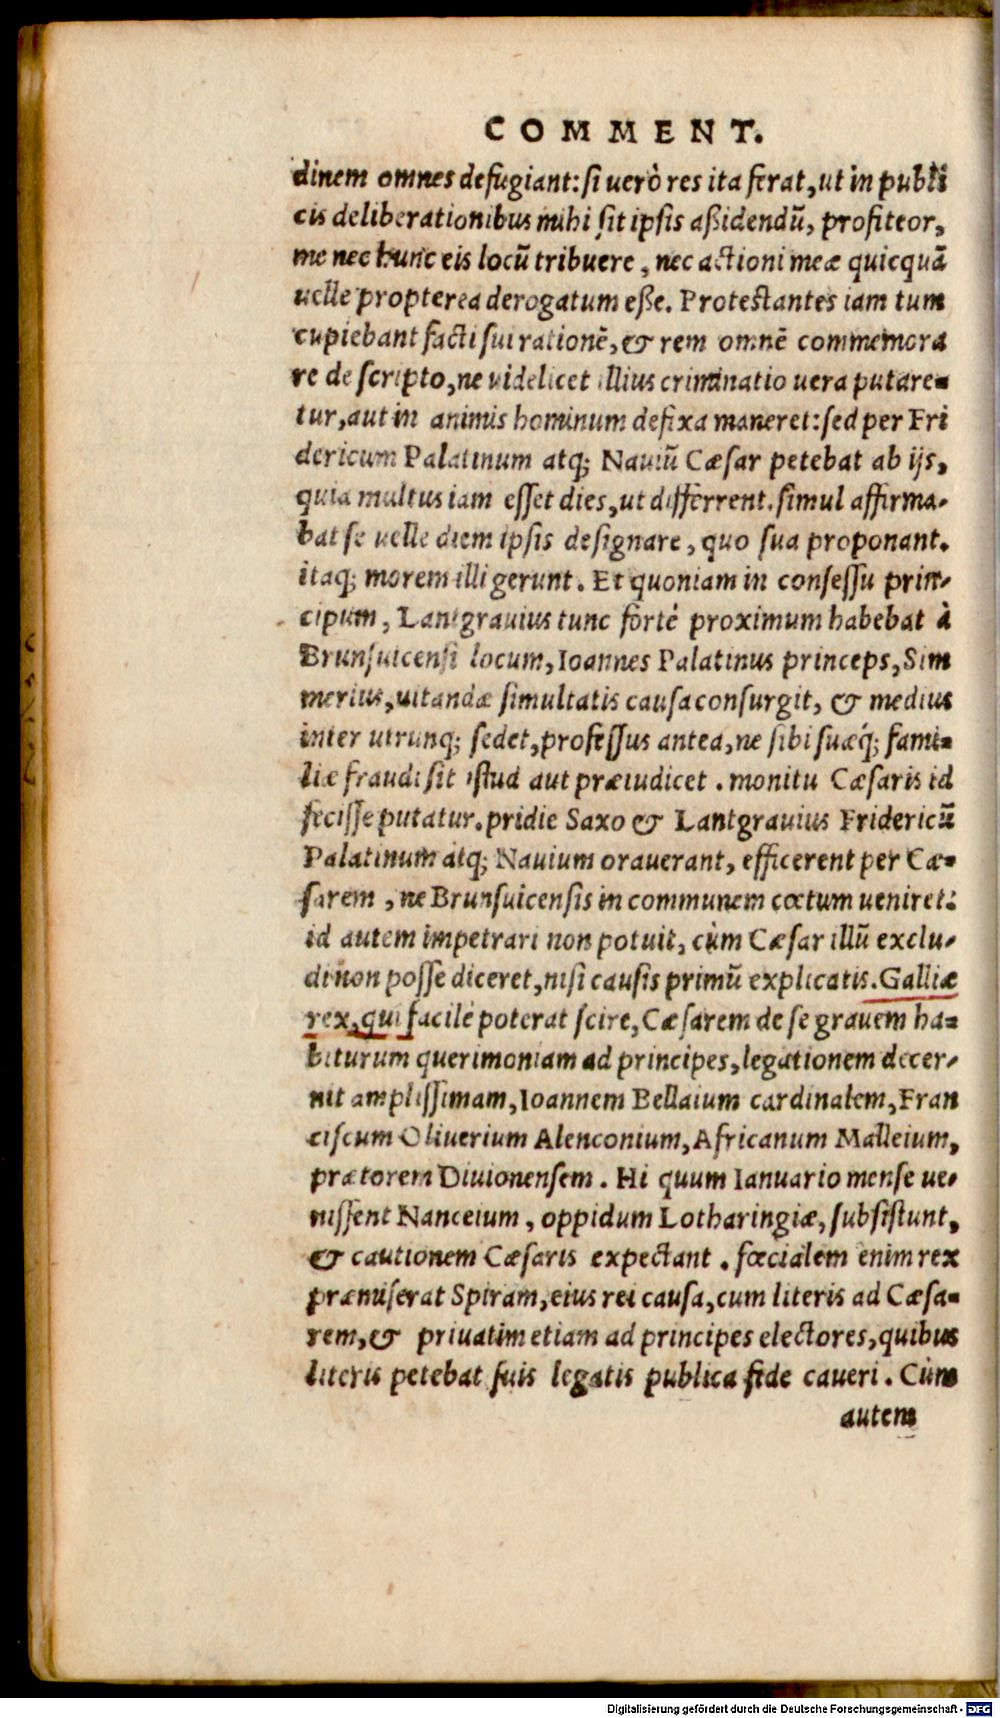 COMMENT.
dinem omnes defugiant: si uerò res ita ferat, ut in publi
cis deliberationibus mihi sit ipsis aßidendũ, profiteor,
me nec hunc eis locũ tribuere, nec actioni meæ quicquã
uelle propterea derogatum eße. Protestantes iam tum
cupiebant facti sui rationẽ, & rem omnẽ commemora
re de scripto, ne uidelicet illius criminatio uera putare-
tur, aut in animis hominum defixa maneret: sed per Fri
dericum Palatinum atq; Nauiũ Cæsar petebat ab ijs,
quia multus iam esset dies, ut differrent. simul affirma-
bat se uelle diem ipsis designare, quo sua proponant.
itaq; morem illi gerunt. Et quoniam in consessu prin-
cipum, Lantgrauius tunc fortè proximum habebat à
Brunsuicensi locum, Ioannes Palatinus princeps, Sim
merius, uitandæ simultatis causa consurgit, & medius
inter utrunq; sedet, professus antea, ne sibi suæq́; fami-
liæ fraudi sit istud aut præiudicet. monitu Cæsaris id
fecisse putatur. pridie Saxo & Lantgrauius Fridericũ
Palatinum atq; Nauium orauerant, efficerent per Cæ-
sarem, ne Brunsuicensis in communem cœtum ueniret:
id autem impetrari non potuit, cùm Cæsar illũ exclu-
di non posse diceret, nisi causis primũ explicatis. Galliæ
rex, qui facilè poterat scire, Cæsarem de se grauem ha-
biturum querimoniam ad principes, legationem decer-
nit amplissimam, Ioannem Bellaium cardinalem, Fran
ciscum Oliuerium Alenconium, Africanum Malleium,
prætorem Diuionensem. Hi quum Ianuario mense ue-
nissent Nanceium, oppidum Lotharingiæ, subsistunt,
& cautionem Cæsaris expectant. fœcialem enim rex
præmiserat Spiram, eius rei causa, cum literis ad Cæsa-
rem, & priuatim etiam ad principes electores, quibus
literis petebat suis legatis publica fide caueri. Cùm
autem
Digitalisierung gefördert durch die Deutsche Forschungsgemeinschaft - DFG